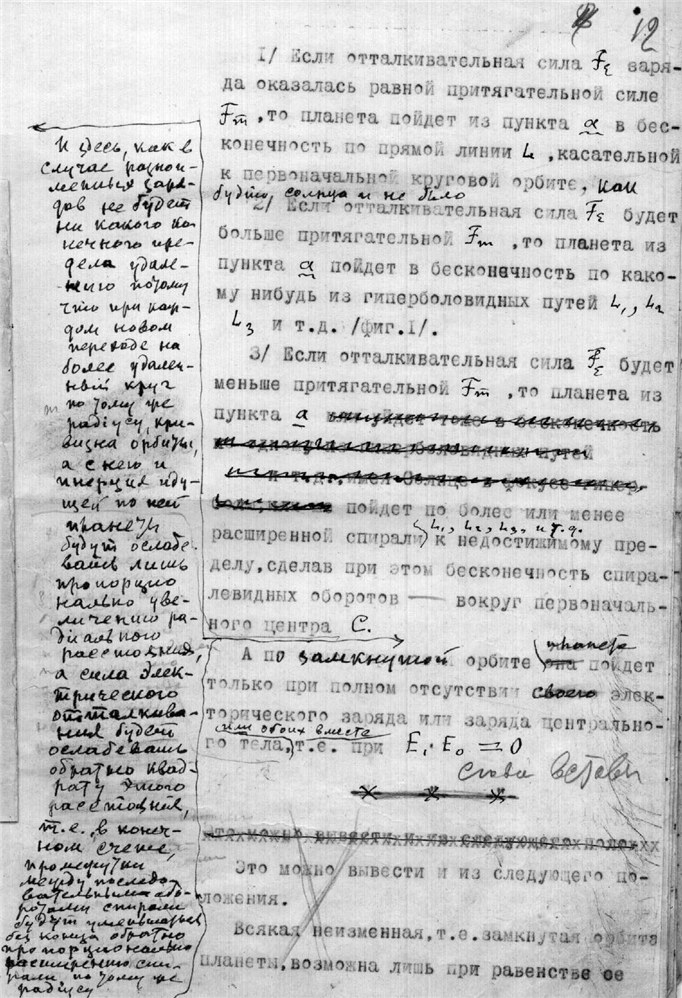 12
1/ Если отталкивательная сила Fε заря-
да оказалась равной притягательной силе
Fm, то планета пойдет из пункта a в бес-
конечность по прямой линии L, касательной
к первоначальной круговой орбите, как
будто, солнца и не было
2/ Если отталкивательная сила Fε будет
больше притягательной Fm, то планета из
пункта a пойдет в бесконечность по како-
му нибудь из гиперболовидных путей L1, L2
L3 и т.д. /фиг.I/.
3/ Если отталкивательная сила Fε будет
меньше притягательной Fm, то планета из
пункта a
пойдет по более или менее
L1, L2, L3, и т.д.
расширенной спирали к недостижимому пре-
делу, сделав при этом бесконечность спира-
левидных оборотов — вокруг первоначаль-
ного центра C.
планета
А по замкнутой орбите она пойдет
только при полном отсутствии своего элек-
торического заряда или заряда центрально-
или обоих вместе
го тела, т.е. при E1·E0=0
сюда вставь
Это можно вывести и из следующего поло
Это можно вывести и из следующего по-
ложения.
Всякая неизменная, т.е. замкнутая орбита
планеты, возможна лишь при равенстве ее
И здесь, как в
случае разной-
менных заря-
дов не будет
ни какого ко-
нечного пре-
дела удале-
ния потому
что при каж-
дом новом
переходе на
более удален-
ный круг
по тому же
радіусу, кри-
визна орбиты,
а с нею и
инерция иду-
щей по ней
планеты
будут ослабе-
вать лишь
пропорцио
нально уве-
личению ра-
діального
расстояния,
а сила элек-
трического
отталкива-
ния будет
ослабевать
обратно квад-
рату этого
расстояния,
т.е., в конеч-
ном счете,
промежутки
между последо-
вательными обо-
ротами спирали
будут уменьшаться
без конца обратно
пропорционально
расширению спи-
рали по тому же
радіусу